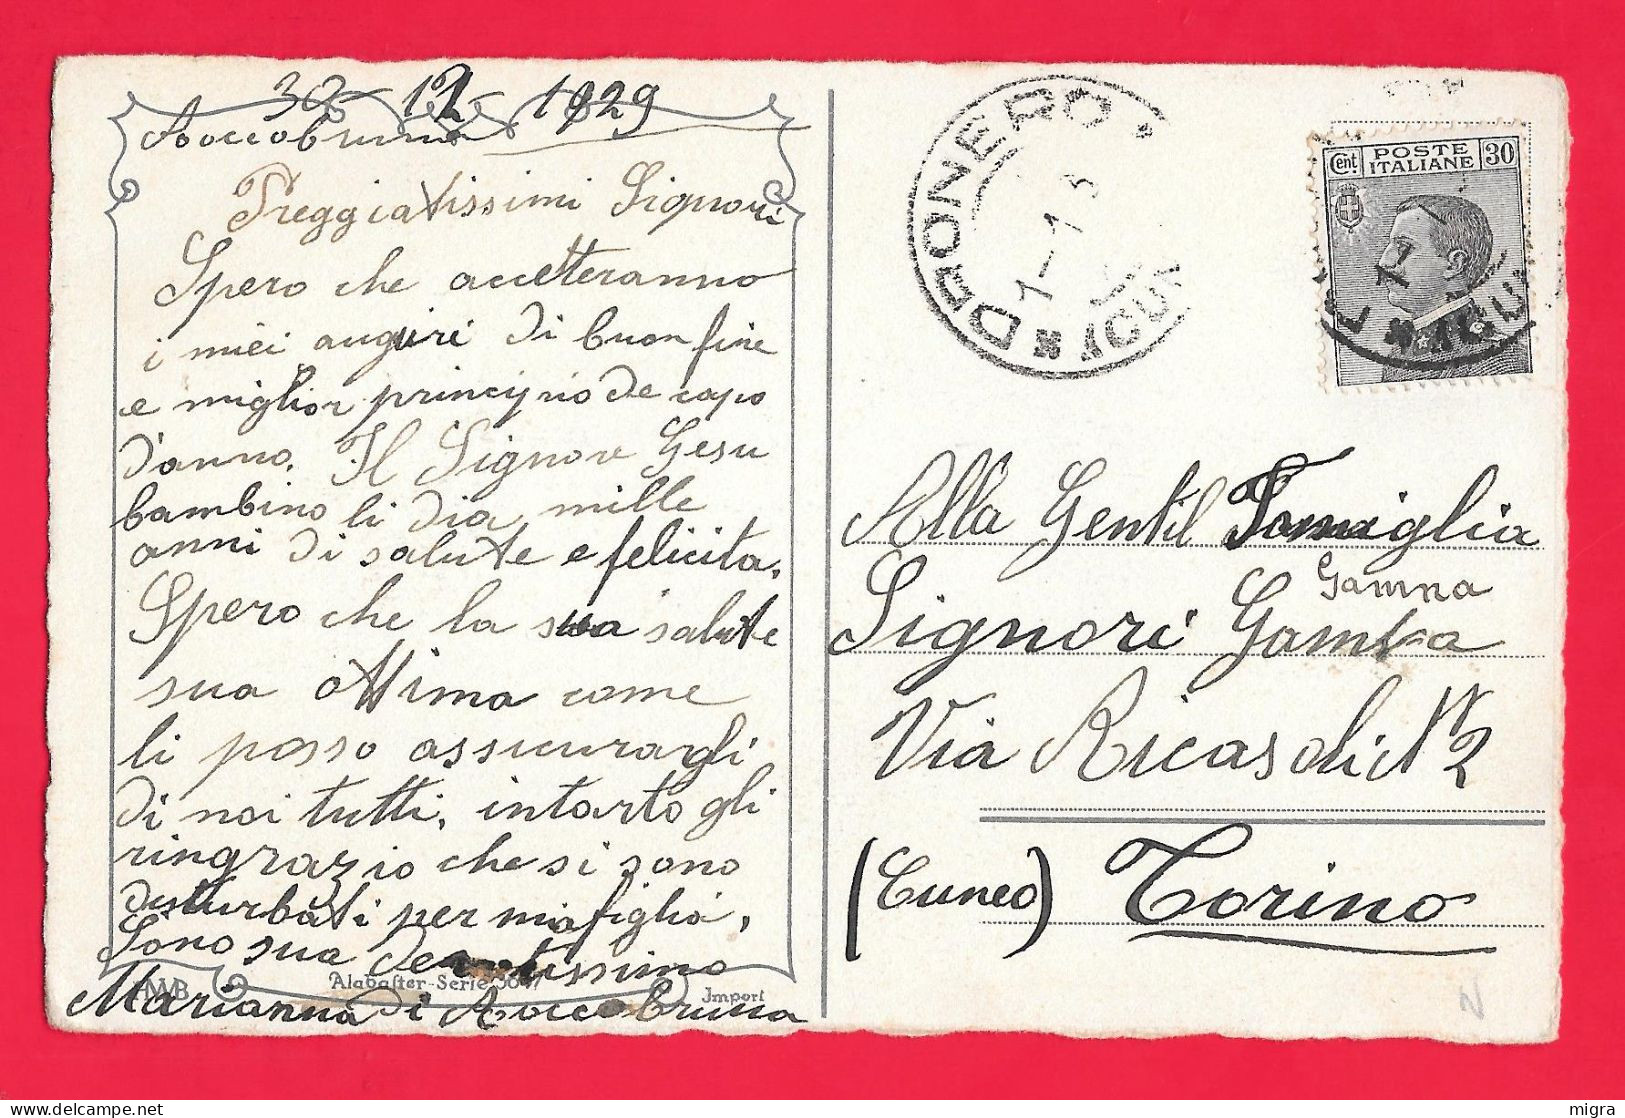 30-12-1929
Roccobruna
Preggiatissimi Signori
Spero che accetteranno
i miei auguri di buon fine
e miglior principio de capo
d'anno. Il Signore Gesu
bambino li dia mille
anni di salute e felicita.
Spero che la sua salute
sua ottima come
li posso assicuragli
di noi tutti, intanto gli
ringrazio che si sono
disturbati per mia figlia,
Sono sua devotissima
Marianna di Roccobruna
HWB
Alabaster-Serie
Import
DRONERO
1-1-3
Cent. POSTE ITALIANE 30
Alla Gentil Famiglia
Gamna
Signori Gamba
Via Ricasoli N 2
(Cuneo) Torino
N
migra